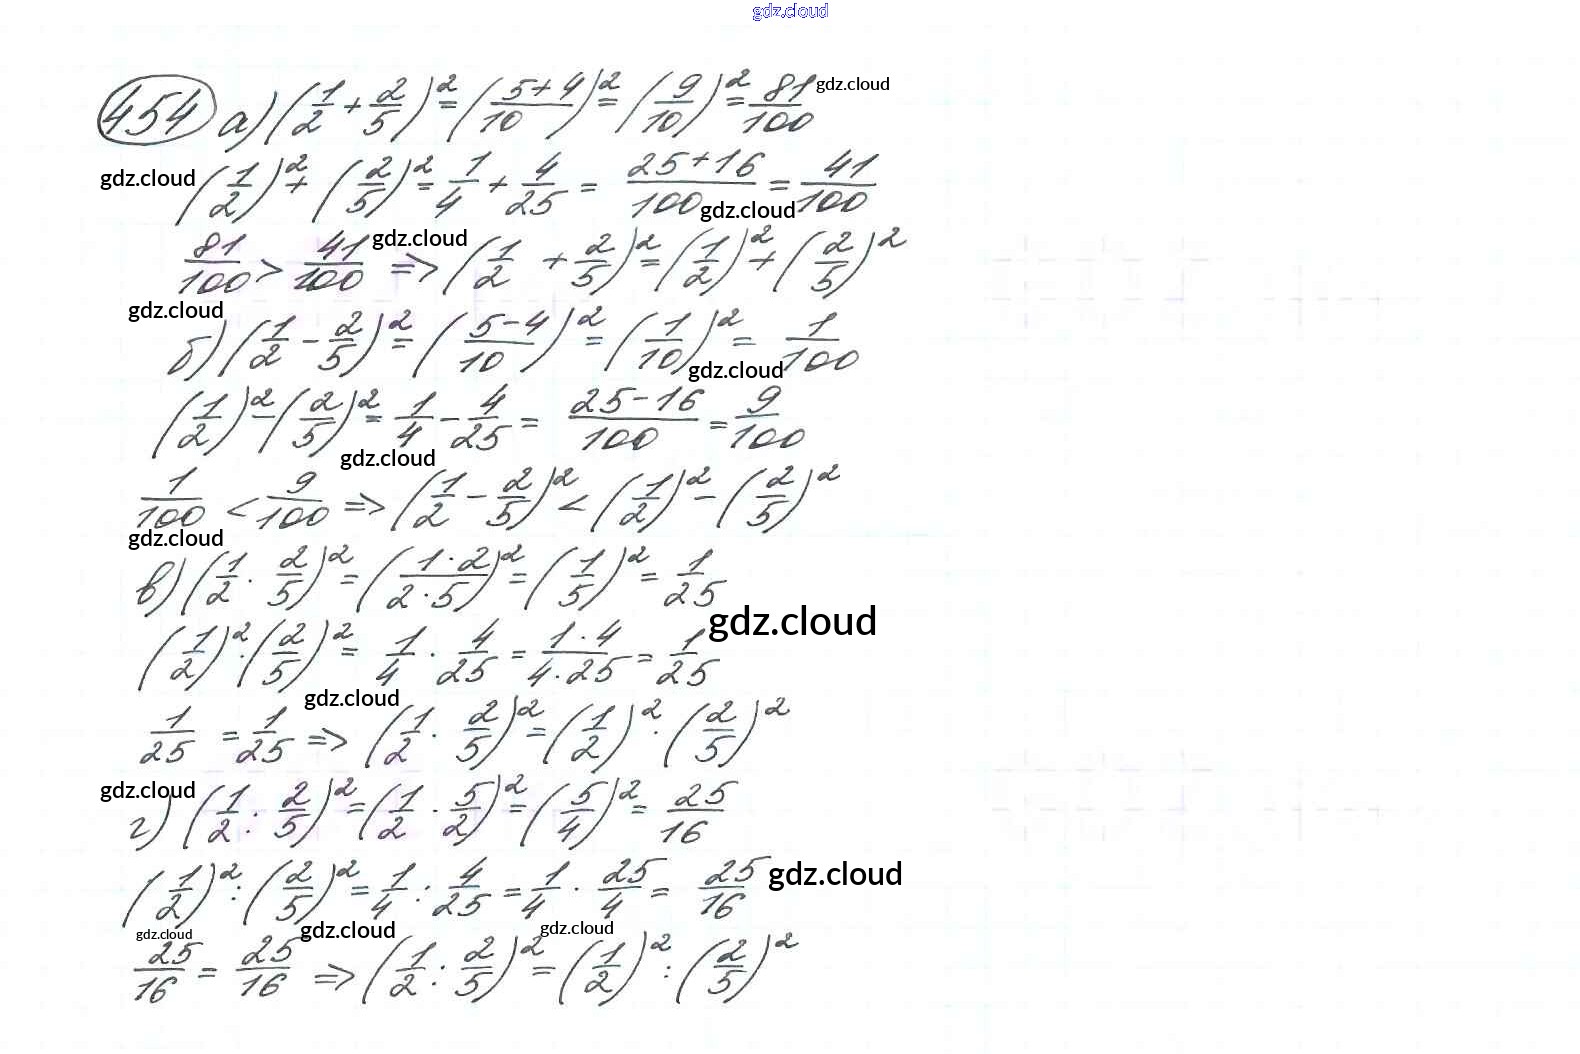 gdz.cloud
454 а) (1/2 + 2/5)² = ((5+4)/10)² = (9/10)² = 81/100 gdz.cloud
gdz.cloud (1/2)² + (2/5)² = 1/4 + 4/25 = (25+16)/100 = 41/100 gdz.cloud
81/100 > 41/100 gdz.cloud => (1/2 + 2/5)² = (1/2)² + (2/5)²
gdz.cloud
б) (1/2 - 2/5)² = ((5-4)/10)² = (1/10)² = 1/100 gdz.cloud
(1/2)² - (2/5)² = 1/4 - 4/25 = (25-16)/100 = 9/100
gdz.cloud
1/100 < 9/100 => (1/2 - 2/5)² < (1/2)² - (2/5)²
gdz.cloud
в) (1/2 · 2/5)² = ((1·2)/(2·5))² = (1/5)² = 1/25
gdz.cloud
(1/2)² · (2/5)² = 1/4 · 4/25 = (1·4)/(4·25) = 1/25
gdz.cloud
1/25 = 1/25 => (1/2 · 2/5)² = (1/2)² · (2/5)²
gdz.cloud
г) (1/2 : 2/5)² = (1/2 · 5/2)² = (5/4)² = 25/16
(1/2)² : (2/5)² = 1/4 : 4/25 = 1/4 · 25/4 = 25/16 gdz.cloud
gdz.cloud gdz.cloud gdz.cloud
25/16 = 25/16 => (1/2 : 2/5)² = (1/2)² : (2/5)²